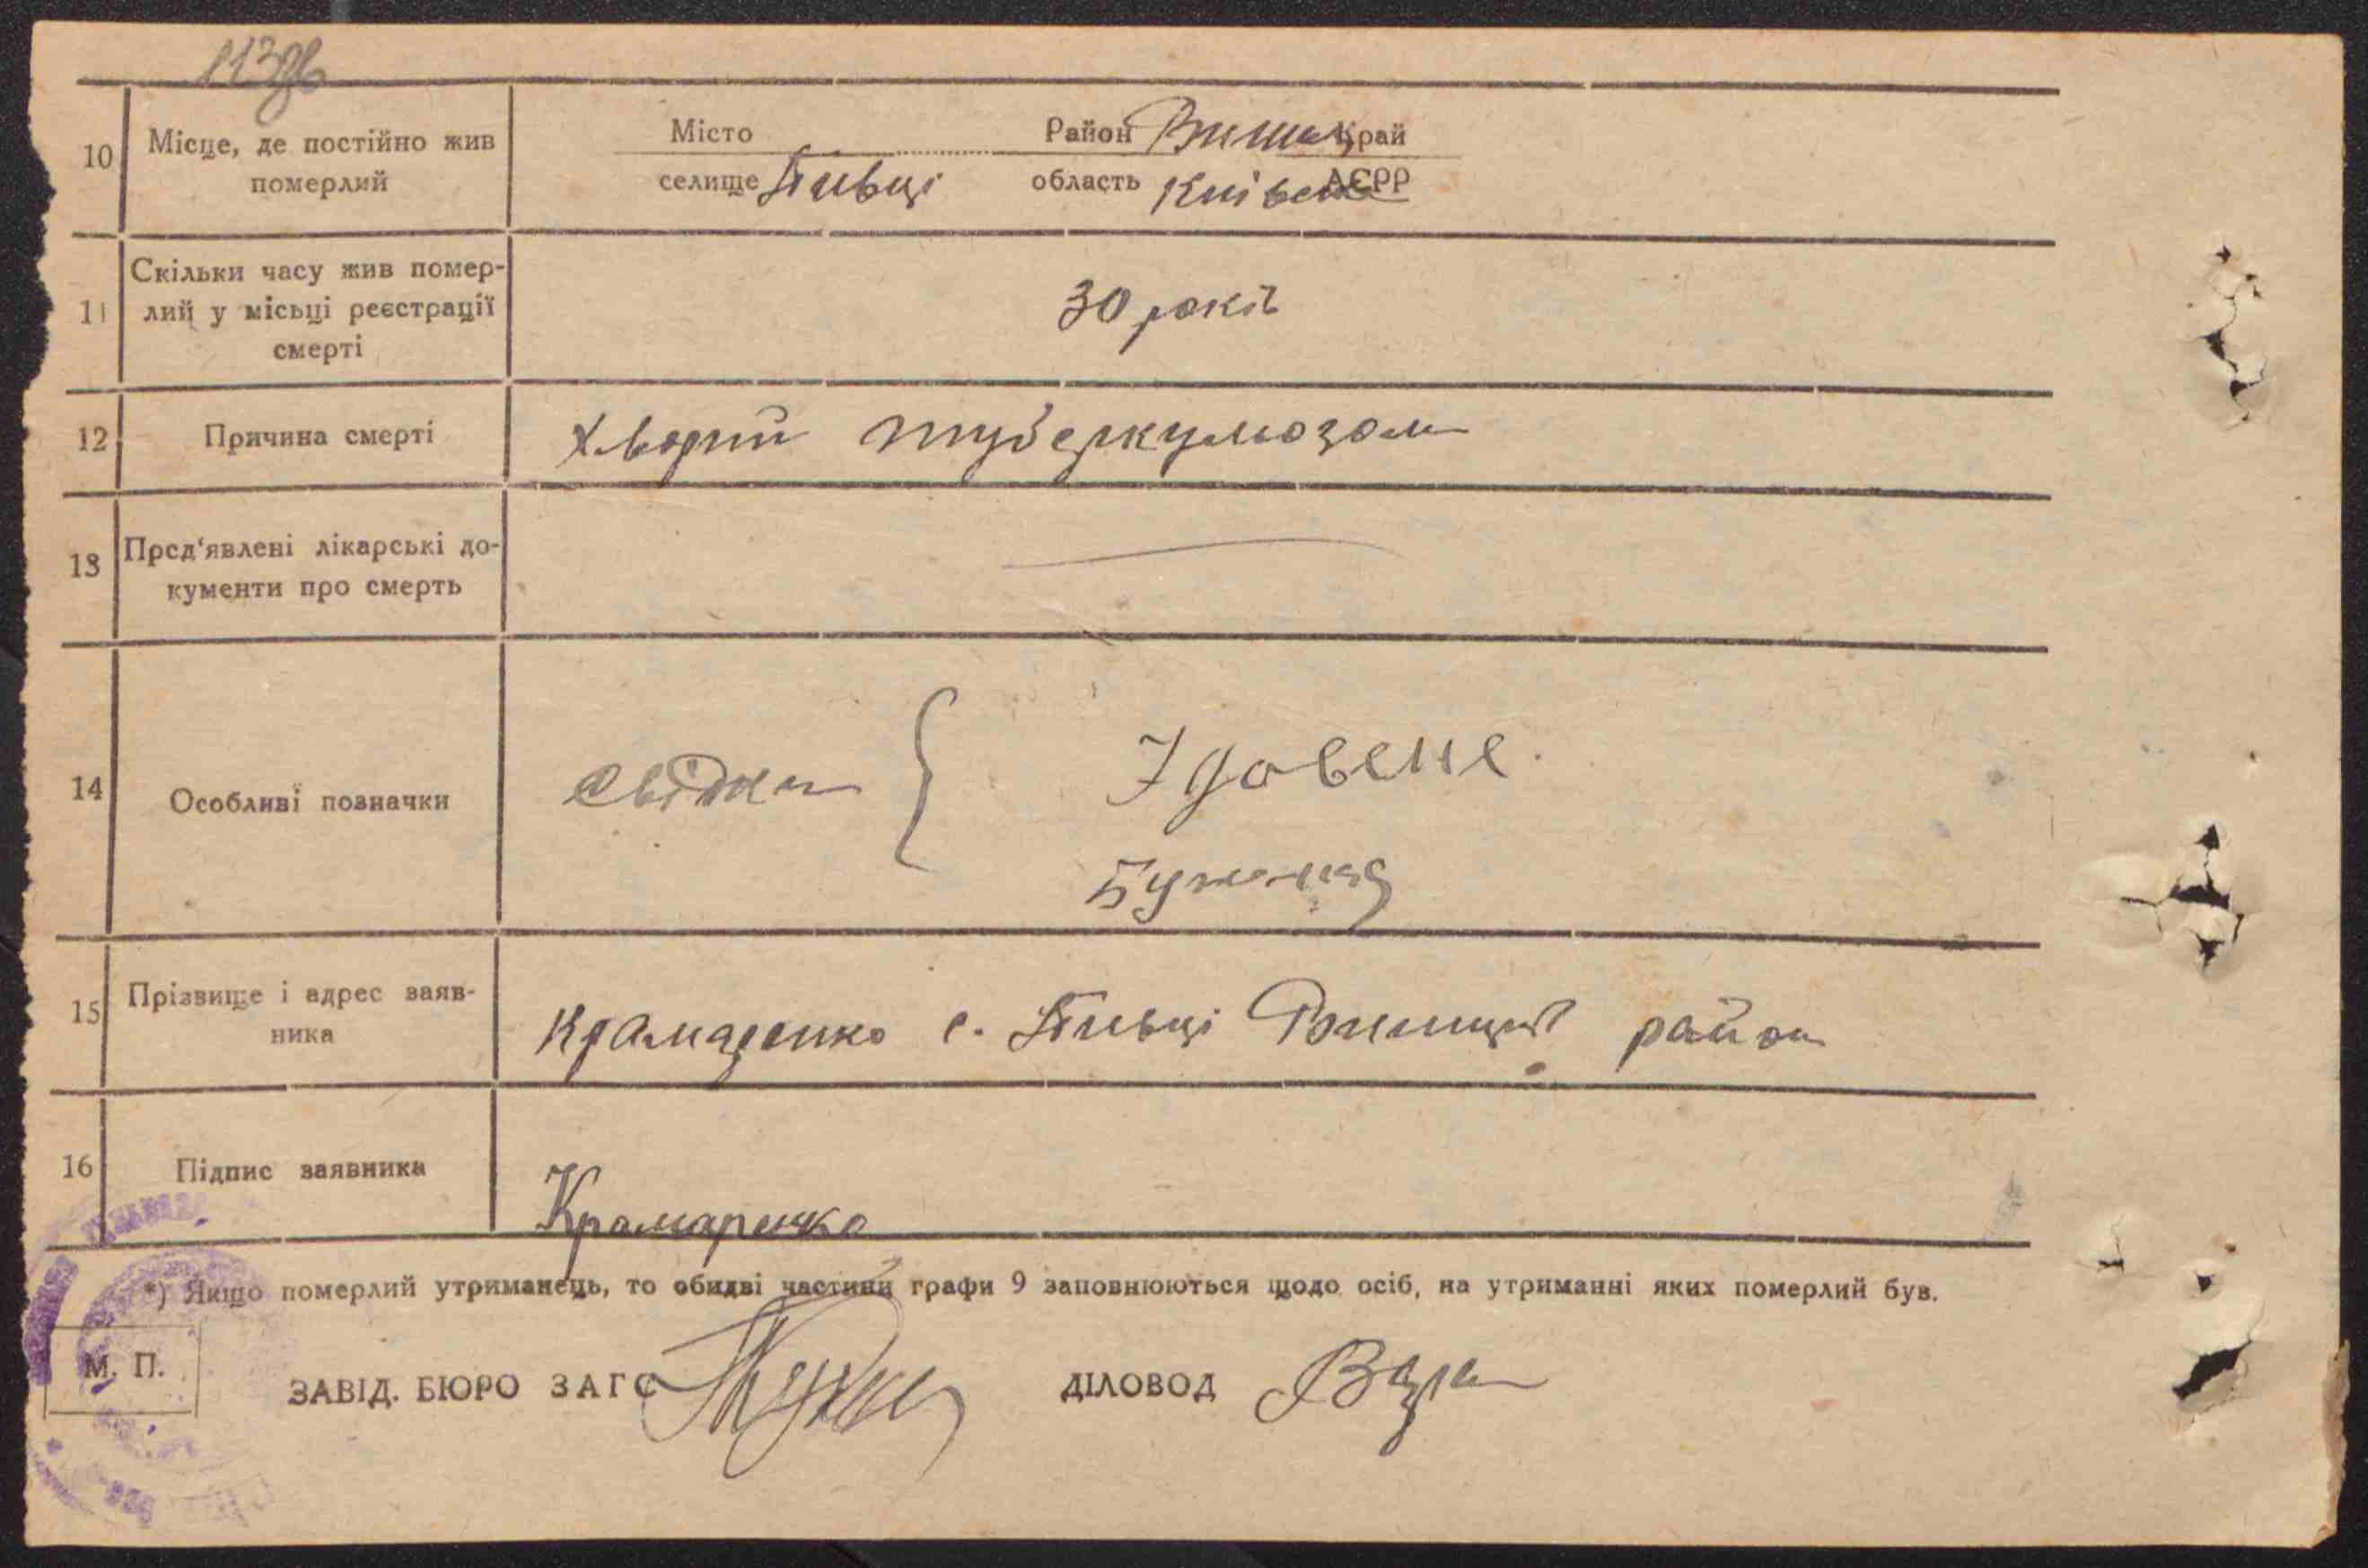 Місто Район Ржищ. край
10 Місце, де постійно жив
померлий
селище Півці область Київськ АСРР
Скільки часу жив помер-
11 лий у місьці реєстрації
смерті
30 років
12 Причина смерті хворий туберкульозом
13 Пред'явлені лікарські до-
кументи про смерть
14 Особливі позначки свідки {
15 Прізвище і адрес заяв-
ника
Крамаренко с. Півці Ржищів район
16 Підпис заявника
Крамаренко
*) Якщо померлий утриманець, то обидві частини графи 9 заповнюються щодо осіб, на утриманні яких померлий був.
М. П.
ЗАВІД. БЮРО ЗАГС ДІЛОВОД